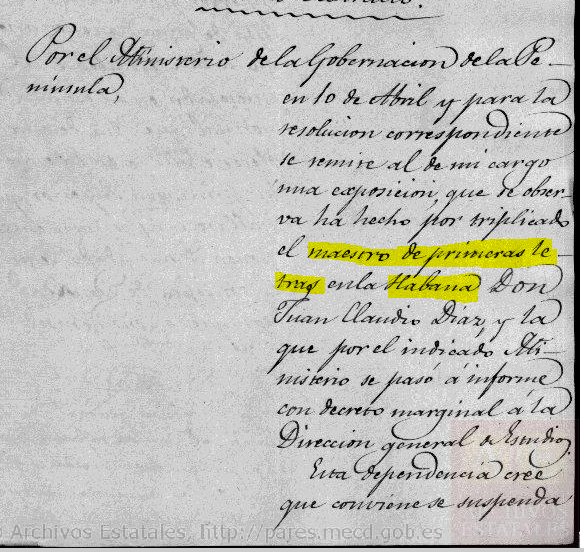 Por el Ministerio de la Gobernacion de la Pe-
nínsula,
en 10 de Abril y para la
resolucion correspondiente
se remite al de mi cargo
una exposicion, que se obser-
va ha hecho por triplicado
el maestro de primeras le-
tras en la Habana Don
Juan Claudio Díaz, y la
que por el indicado Mi-
nisterio se pasó á informe
con decreto marginal á la
Direccion general de Estudios.
Esta dependencia cree
que conviene se suspenda
Archivos Estatales, http://pares.mecd.gob.es
ESTATALES